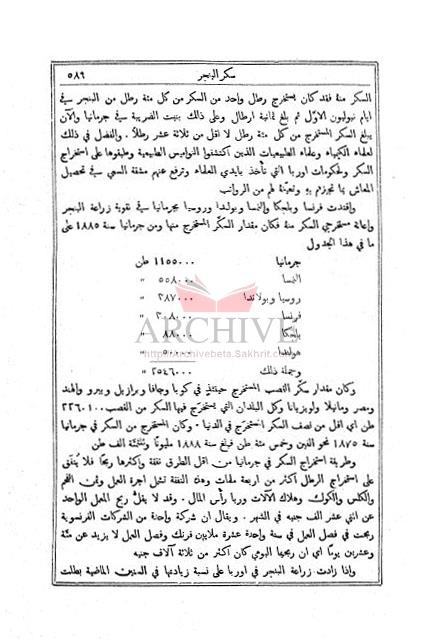 سكر البنجر ٥٨٩
السكر منهُ فقد كان يستخرج رطل واحد من السكر من كل مئة رطل من البنجر في
ايام نبوليون الاوّل ثم بلغ ثمانية ارطال وعلى ذلك بنيت الضريبة في جرمانيا والآن
يبلغ السكر المستخرج من كل مئة رطل لا اقل من ثلاثة عشر رطلاً. والفضل في ذلك
لعلماء الكيمياء وعلماء الطبيعيات الذين اكتشفوا النواميس الطبيعية وطبقوها على استخراج
السكر ولحكومات اوربا التي تأخذ بايدي العلماء وترفع عنهم مشقة السعي في تحصيل
المعاش بما تجيزهم بهِ وتعينهُ لهم من الرواتب
واقتدت فرنسا وبلجكا والنمسا وبولندا وروسيا بجرمانيا في تقوية زراعة البنجر
واعانة مستخرجي السكر منهُ فكان مقدار السكّر المستخرج منها ومن جرمانيا سنة ١٨٨٥ على
ما في هذا الجدول
جرمانيا ١١٥٥٠٠٠ طن
النمسا ٥٥٨٠٠٠ "
روسيا وبولاندا ٣٨٧٠٠٠ "
فرنسا ٣٠٨٠٠٠ "
بلجكا ٨٨٠٠٠ "
هولندا ٥٠٠٠٠ "
وجملة ذلك ٢٥٤٦٠٠٠ "
ARCHIVE
http://archivebeta.Sakhrit.com
وكان مقدار سكّر القصب المستخرج حينئذٍ في كوبا وجافا وبرازيل وبيرو والهند
ومصر ومانيلا ولويزيانا وكل البلدان التي يستخرج فيها السكر من القصب ٢٢٦٠١٠٠
طن اي اقل من نصف السكر المستخرج في الدنيا. وكان المستخرج من السكر في جرمانيا
سنة ١٨٧٥ نحو الفين وخمس مئة طن فبلغ سنة ١٨٨٨ مليونًا وثلثمئة الف طن
وطريقة استخراج السكر في جرمانيا من اقل الطرق نفقة واكثرها ربحًا فلا يُنفق
على استخراج الرطل اكثر من اربعة ملمات وهذه النفقة تشمل اجرة العمل وثمن الفحم
والكلس والكوك وهلاك الآلات وربا رأس المال. وقد لا يقلّ ربح المعمل الواحد
عن اثني عشر الف جنيه في الشهر. ويقال ان شركة واحدة من الشركات الفرنسوية
ربحت في فصل العمل في سنة واحدة عشرة ملايين فرنك وفصل العمل لا يزيد عن مئة
وعشرين يومًا اي ان ربحها اليومي كان اكثر من ثلاثة آلاف جنيه
واذا زادت زراعة البنجر في اوربا على نسبة زيادتها في السنين الماضية بطلت